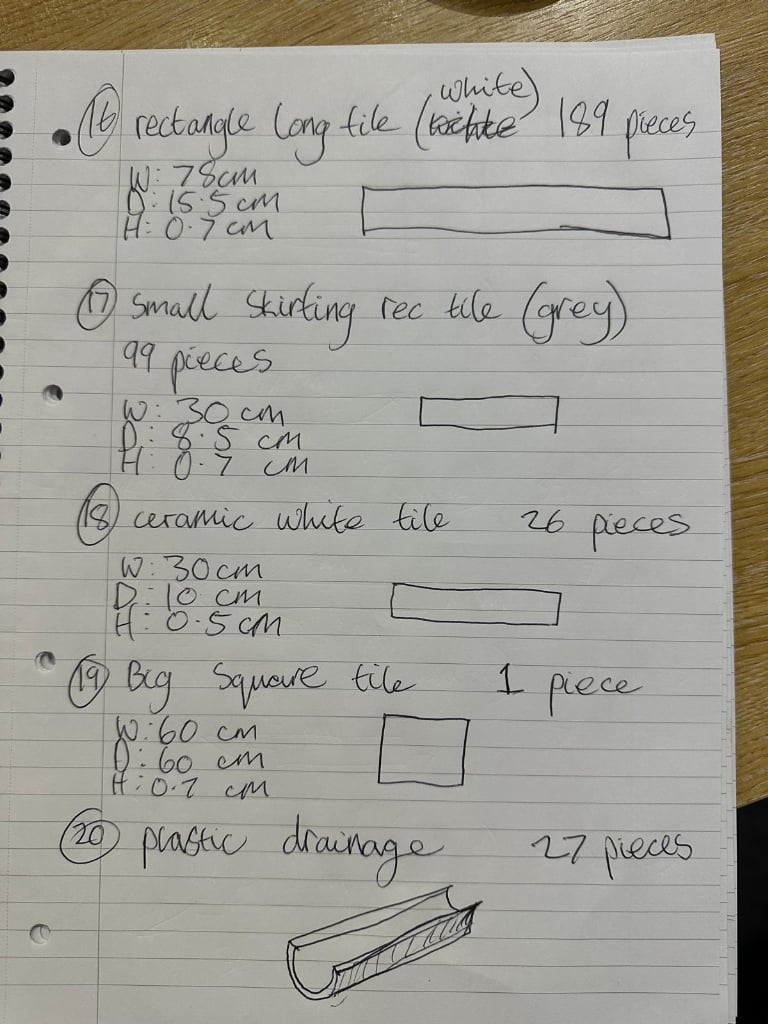 16 rectangle long tile (white) 189 pieces
W: 78cm
D: 15.5 cm
H: 0.7 cm
17 Small Skirting rec tile (grey)
99 pieces
W: 30 cm
D: 8.5 cm
H: 0.7 cm
18 ceramic white tile 26 pieces
W: 30cm
D: 10 cm
H: 0.5 cm
19 Big Square tile 1 piece
W: 60 cm
D: 60 cm
H: 0.7 cm
20 plastic drainage 27 pieces